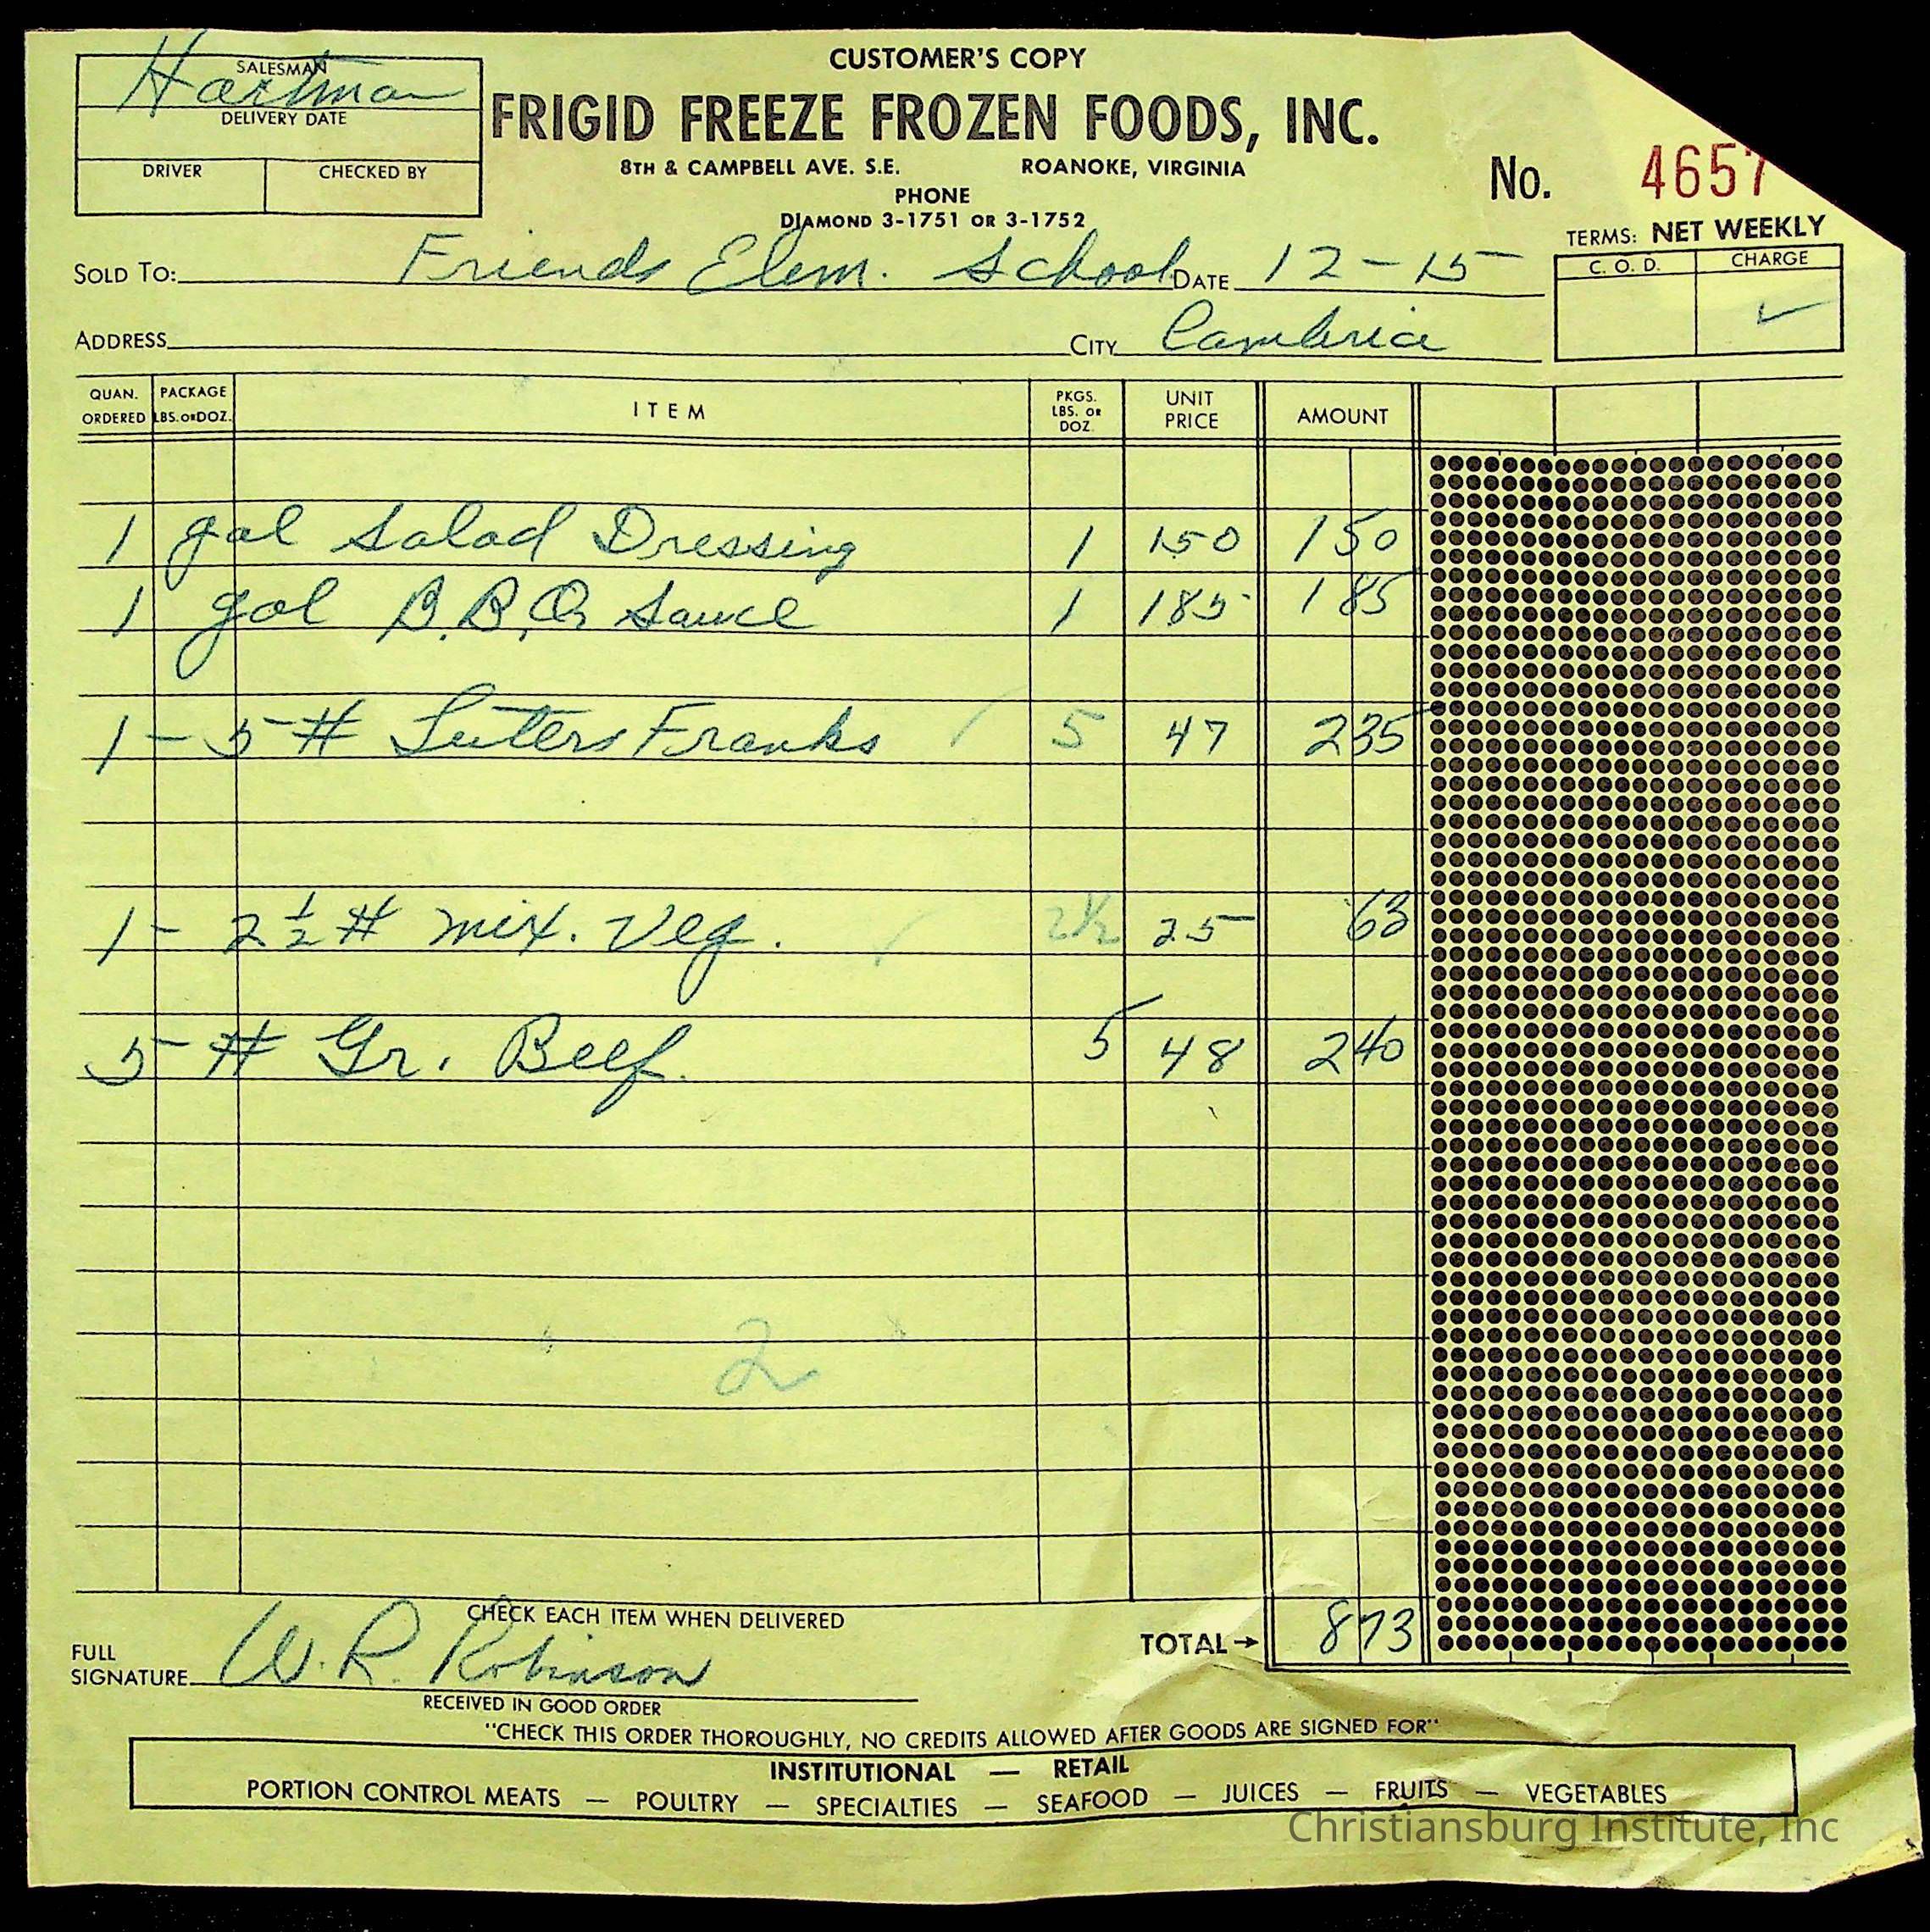 CUSTOMER'S COPY
SALESMAN Hartman
DELIVERY DATE
DRIVER CHECKED BY
FRIGID FREEZE FROZEN FOODS, INC.
8TH & CAMPBELL AVE. S.E. ROANOKE, VIRGINIA
PHONE
DIAMOND 3-1751 OR 3-1752
No. 4657
TERMS: NET WEEKLY
C. O. D. CHARGE
✓
SOLD TO: Friends Elem. School DATE 12-15
ADDRESS CITY Cambria
QUAN. ORDERED PACKAGE LBS. OR DOZ. ITEM PKGS. LBS. OR DOZ. UNIT PRICE AMOUNT
1 gal Salad Dressing 1 150 150
1 gal B.B.Q. Sauce 1 185 185
1 - 5 # Luters Franks 5 47 235
1 - 2 1/2 # mix. Veg. 2½ 25 63
5 # Gr. Beef. 5 48 240
2
CHECK EACH ITEM WHEN DELIVERED
TOTAL→ 873
FULL SIGNATURE W. R. Robinson
RECEIVED IN GOOD ORDER
"CHECK THIS ORDER THOROUGHLY, NO CREDITS ALLOWED AFTER GOODS ARE SIGNED FOR"
INSTITUTIONAL — RETAIL
PORTION CONTROL MEATS — POULTRY — SPECIALTIES — SEAFOOD — JUICES — FRUITS — VEGETABLES
Christiansburg Institute, Inc